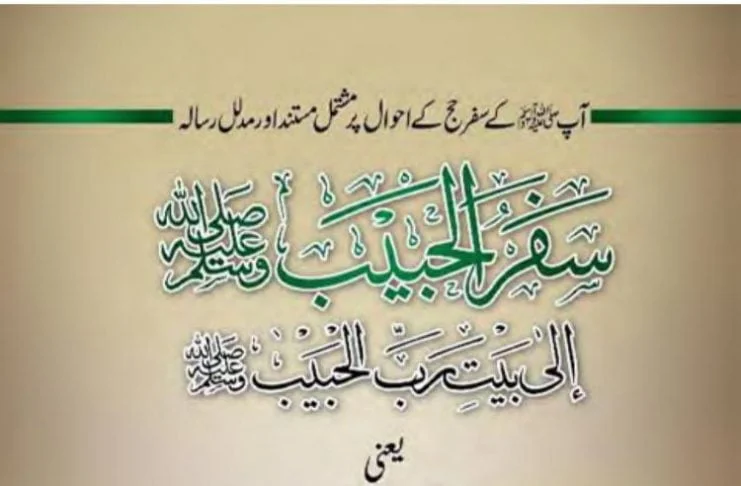 آپ ﷺ کے سفر حج کے احوال پر مشتمل مستند اور مدلل رسالہ
سَفَرُ الْحَبِيْب صلى الله عليه وسلم
إلى بَيْتِ رَبِّ الْحَبِيْب صلى الله عليه وسلم
یعنی